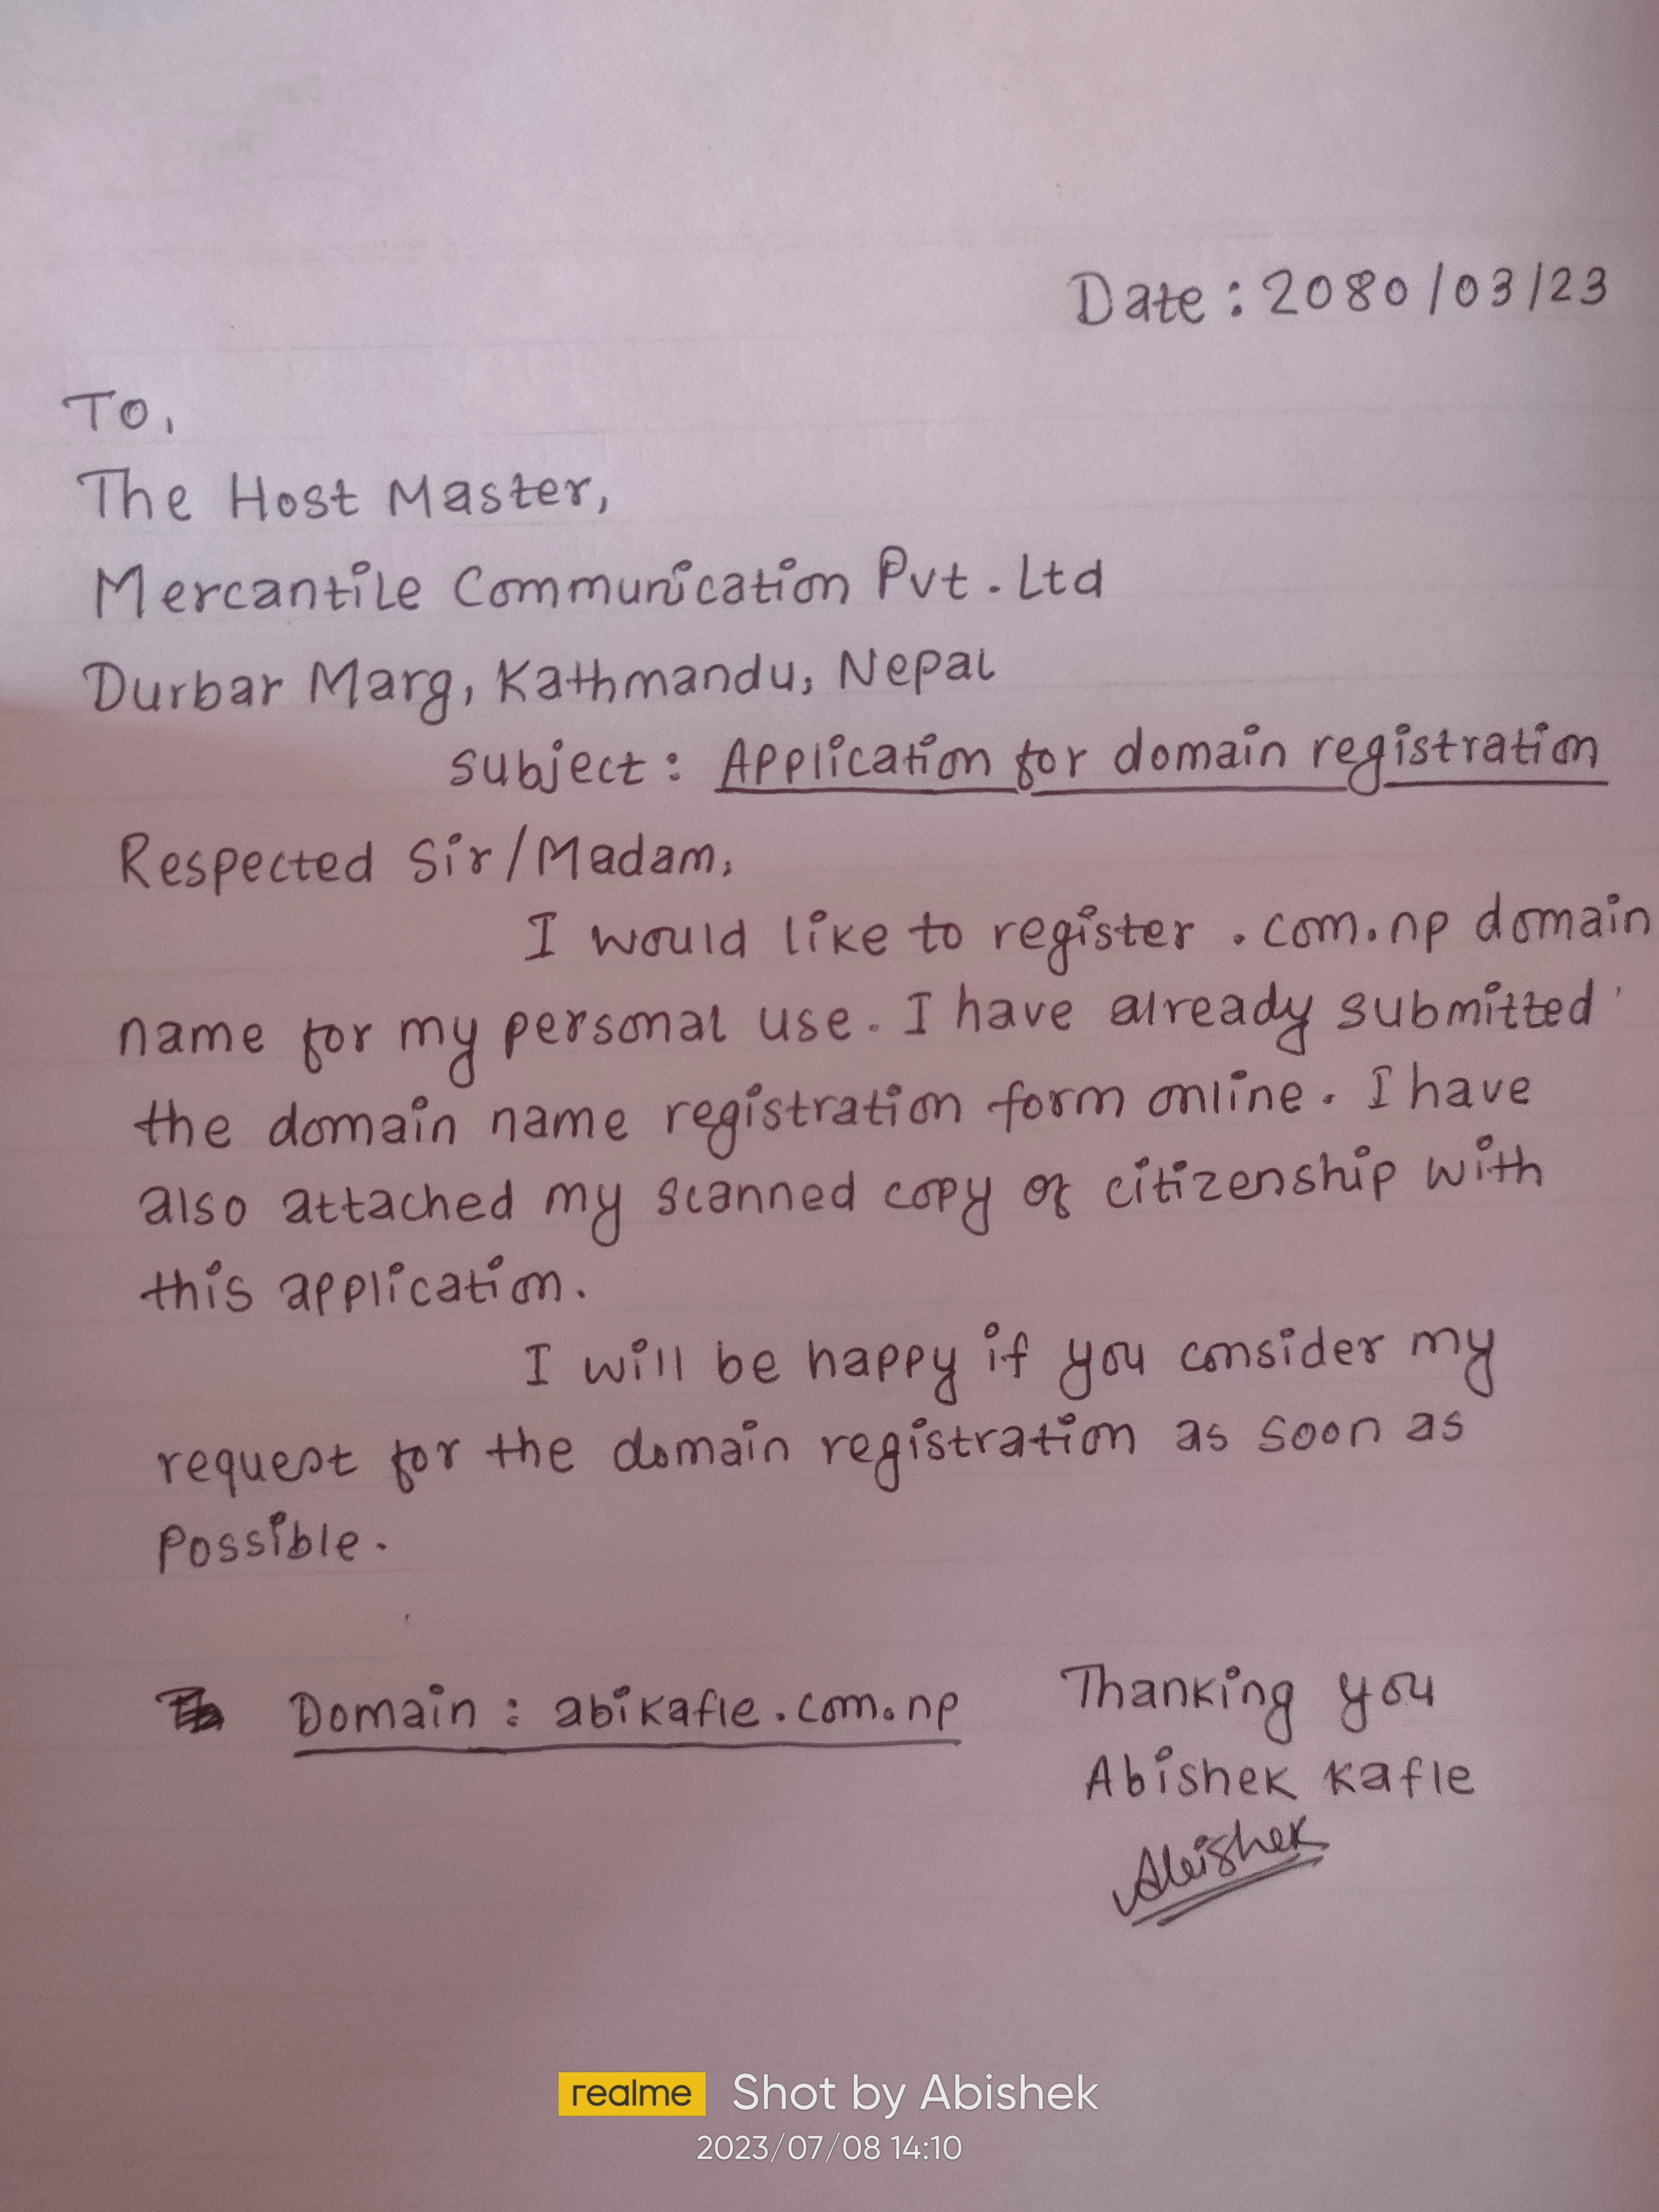 Date : 2080/03/23
To,
The Host Master,
Mercantile Communication Pvt. Ltd
Durbar Marg, Kathmandu, Nepal
subject : Application for domain registration
Respected Sir/Madam,
I would like to register .com.np domain
name for my personal use. I have already submitted
the domain name registration form online. I have
also attached my scanned copy of citizenship with
this application.
I will be happy if you consider my
request for the domain registration as soon as
possible.
Domain : abikafle.com.np
Thanking you
Abishek Kafle
Abishek
realme Shot by Abishek
2023/07/08 14:10